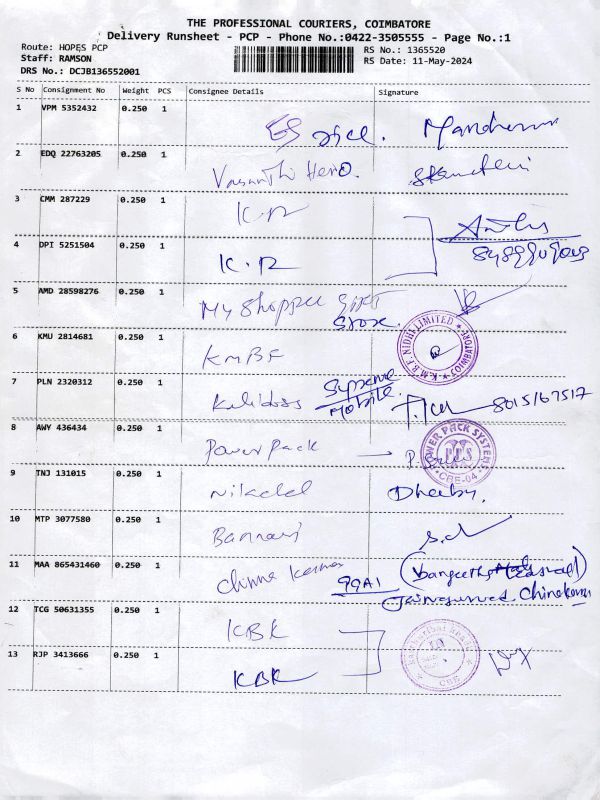 THE PROFESSIONAL COURIERS, COIMBATORE
Delivery Runsheet - PCP - Phone No.:0422-3505555 - Page No.:1
Route: HOPES PCP
Staff: RAMSON
DRS No.: DCJB136552001
RS No.: 1365520
RS Date: 11-May-2024
S No Consignment No Weight PCS Consignee Details Signature
1 VPM 5352432 0.250 1
office.
2 EDQ 22763205 0.250 1
Vasanthi Hero.
3 CMM 287229 0.250 1
K.R
4 DPI 5251504 0.250 1
K.R
5 AMD 28598276 0.250 1
My Shoppee Gift
Store.
6 KMU 2814681 0.250 1
KMBF
K.M.B.F. NIDHI LIMITED COIMBATORE
7 PLN 2320312 0.250 1
Kalidoss Supreme
Mobile
8015167517
8 AWY 436434 0.250 1
Power Pack
POWER PACK SYSTEMS PPS CBE-04
9 TNJ 131015 0.250 1
10 MTP 3077580 0.250 1
Bannari
11 MAA 865431460 0.250 1
99A1
12 TCG 50631355 0.250 1
KBK
13 RJP 3413666 0.250 1
KBK
CBE